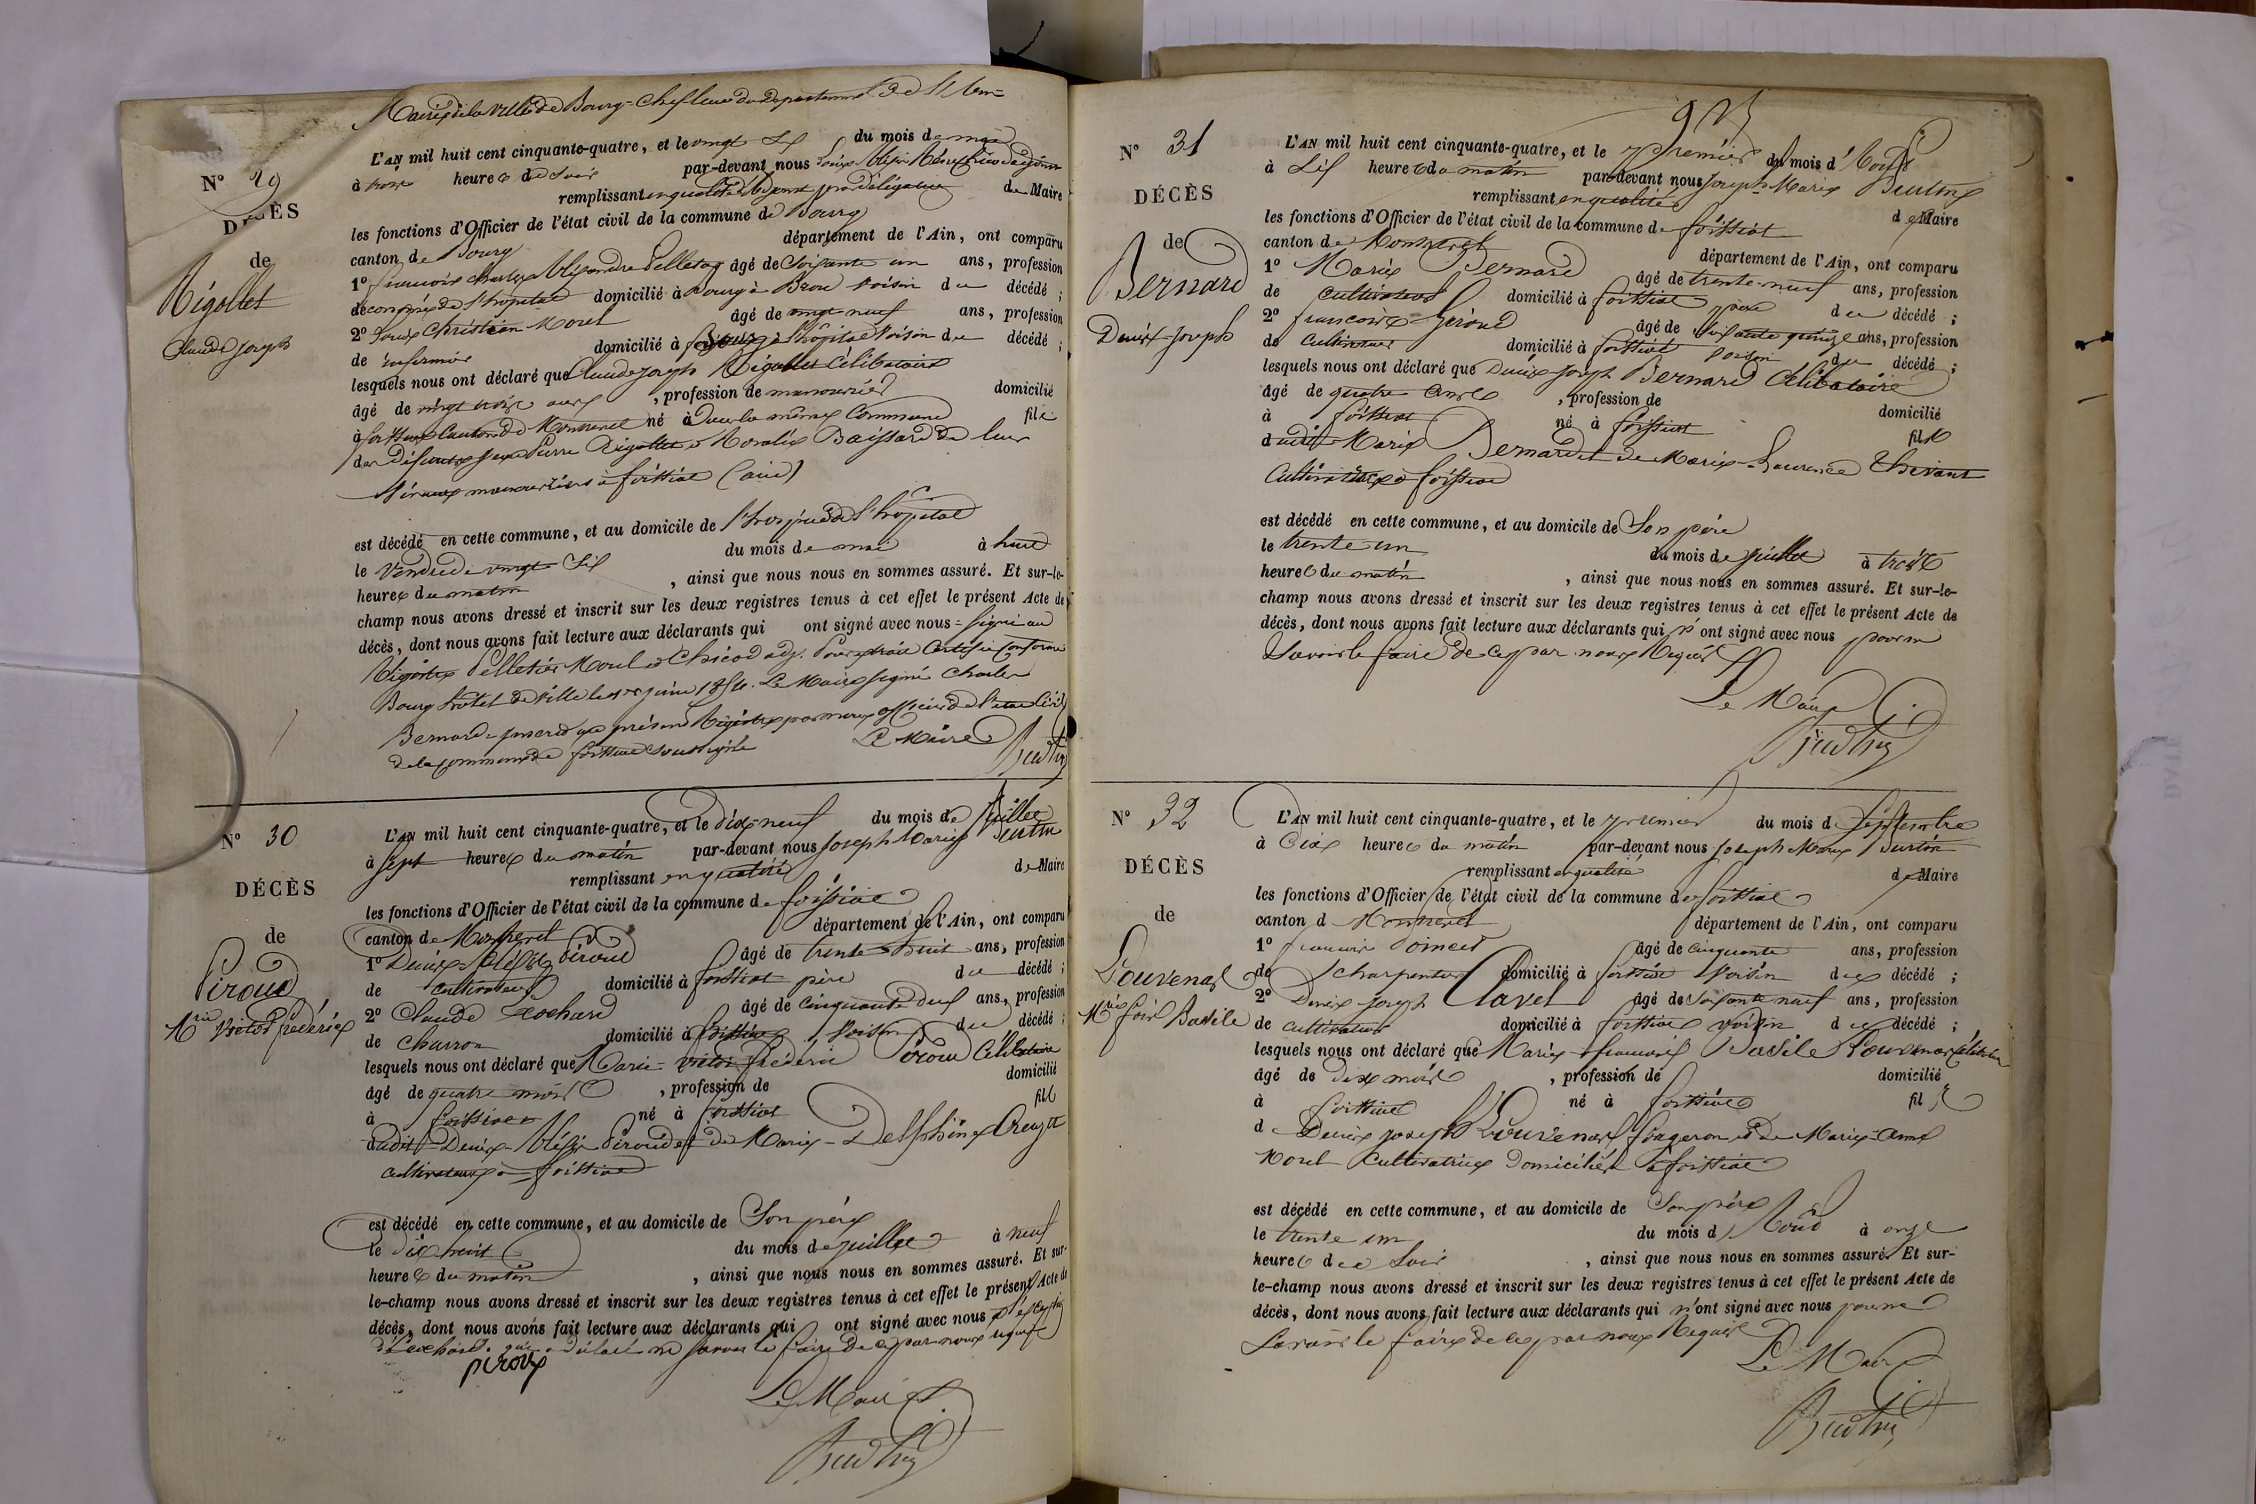 Mairie de la Ville de Bourg = Chef lieu du département de l'Ain =
N° 29
DÉCÈS
de
Rigollet
Claude Joseph
L'AN mil huit cent cinquante-quatre, et le vingt six du mois de mai
à trois heures du soir par-devant nous
remplissant en qualité d'adjoint par délégation de Maire
les fonctions d'Officier de l'état civil de la commune de Bourg
canton de Bourg département de l'Ain, ont comparu
1° François Charles Alexandre Pelletier âgé de soixante un ans, profession
de économe de l'hôpital domicilié à Bourg à Brou voisin du décédé ;
2° Louis Christian Morel âgé de vingt neuf ans, profession
de infirmier domicilié à Bourg à l'hôpital voisin du décédé ;
lesquels nous ont déclaré que Claude Joseph Rigollet célibataire
âgé de vingt trois ans , profession de manouvrier domicilié
à foissiat Canton de Montrevel né à Dans la même Commune fils
des défunts Pierre Rigollet et Rosalie Baissard de leur
vivant manouvriers à foissiat (ain)
est décédé en cette commune, et au domicile de l'hospice de l'hôpital
le Vendredi vingt six du mois de mai à huit
heures du matin , ainsi que nous nous en sommes assuré. Et sur-le-
champ nous avons dressé et inscrit sur les deux registres tenus à cet effet le présent Acte de
décès, dont nous avons fait lecture aux déclarants qui ont signé avec nous = signé au
Registre Pelletier Morel et Chicod adj. Pour extrait Certifié Conforme
Bourg hotel de Ville le juin 1854. Le Maire signé Charles
Bernard = au présent Registre par nous officier de l'état Civil
de la commune de foissiat soussigné Le Maire
N° 30
DÉCÈS
de
Piroud
Mrie Victor frédéric
L'AN mil huit cent cinquante-quatre, et le dix neuf du mois de Juillet
à sept heures du matin par-devant nous Joseph Marie Burtin
remplissant en qualité de Maire
les fonctions d'Officier de l'état civil de la commune de foissiat
canton de Montrevel département de l'Ain, ont comparu
1° Denis Piroud âgé de trente huit ans, profession
de cultivateur domicilié à foissiat père du décédé ;
2° Claude Lochard âgé de cinquante deux ans, profession
de charron domicilié à foissiat voisin du décédé ;
lesquels nous ont déclaré que Marie = Victor frédéric Piroud Célibataire
âgé de quatre mois , profession de domicilié
à foissiat né à foissiat fils
dudit Denis Piroud et de Marie = Delphine
cultivateurs à foissiat
est décédé en cette commune, et au domicile de Son père
le dix huit du mois de juillet à neuf
heures du matin , ainsi que nous nous en sommes assuré. Et sur-
le-champ nous avons dressé et inscrit sur les deux registres tenus à cet effet le présent Acte de
décès, dont nous avons fait lecture aux déclarants qui ont signé avec nous
de Lochard qui a déclaré ne savoir le faire de ce par nous requis
Piroud
Le Maire
Burtin
93
N° 31
DÉCÈS
de
Bernard
Denis-Joseph
L'AN mil huit cent cinquante-quatre, et le premier du mois d'Août
à six heures du matin par-devant nous Joseph Marie Burtin
remplissant en qualité de Maire
les fonctions d'Officier de l'état civil de la commune de foissiat
canton de Montrevel département de l'Ain, ont comparu
1° Marie Bernard âgé de trente-neuf ans, profession
de cultivateur domicilié à foissiat père du décédé ;
2° françois Giroud âgé de soixante quinze ans, profession
de cultivateur domicilié à foissiat voisin du décédé ;
lesquels nous ont déclaré que Denis Joseph Bernard Célibataire
âgé de quatre ans , profession de domicilié
à foissiat né à foissiat fils
dudit Marie Bernard et de Marie-Laurence Thevant
Cultivateurs à foissiat
est décédé en cette commune, et au domicile de Son père
le trente un du mois de juillet à trois
heures du matin , ainsi que nous nous en sommes assuré. Et sur-le-
champ nous avons dressé et inscrit sur les deux registres tenus à cet effet le présent Acte de
décès, dont nous avons fait lecture aux déclarants qui n'ont signé avec nous pour ne
Savoir le faire de ce par nous Requis
Le Maire
Burtin
N° 32
DÉCÈS
de
Louvenas
Mrie fois Basile
L'AN mil huit cent cinquante-quatre, et le premier du mois d Septembre
à dix heures du matin par-devant nous Joseph Marie Burtin
remplissant en qualité de Maire
les fonctions d'Officier de l'état civil de la commune de foissiat
canton d Montrevel département de l'Ain, ont comparu
1° françois âgé de cinquante ans, profession
de charpentier domicilié à foissiat voisin du décédé ;
2° Denis Joseph Clavel âgé de soixante neuf ans, profession
de cultivateur domicilié à foissiat voisin du décédé ;
lesquels nous ont déclaré que Marie françois Basile Louvenas célibataire
âgé de dix mois , profession de domicilié
à foissiat né à foissiat fils
d Denis Joseph Louvenas forgeron et de Marie-Anne
Morel Cultivatrice Domiciliés à foissiat
est décédé en cette commune, et au domicile de Son père
le trente un du mois d Août à onze
heures du soir , ainsi que nous nous en sommes assuré. Et sur-
le-champ nous avons dressé et inscrit sur les deux registres tenus à cet effet le présent Acte de
décès, dont nous avons fait lecture aux déclarants qui n'ont signé avec nous pour ne
Savoir le faire de ce par nous Requis
Le Maire
Burtin